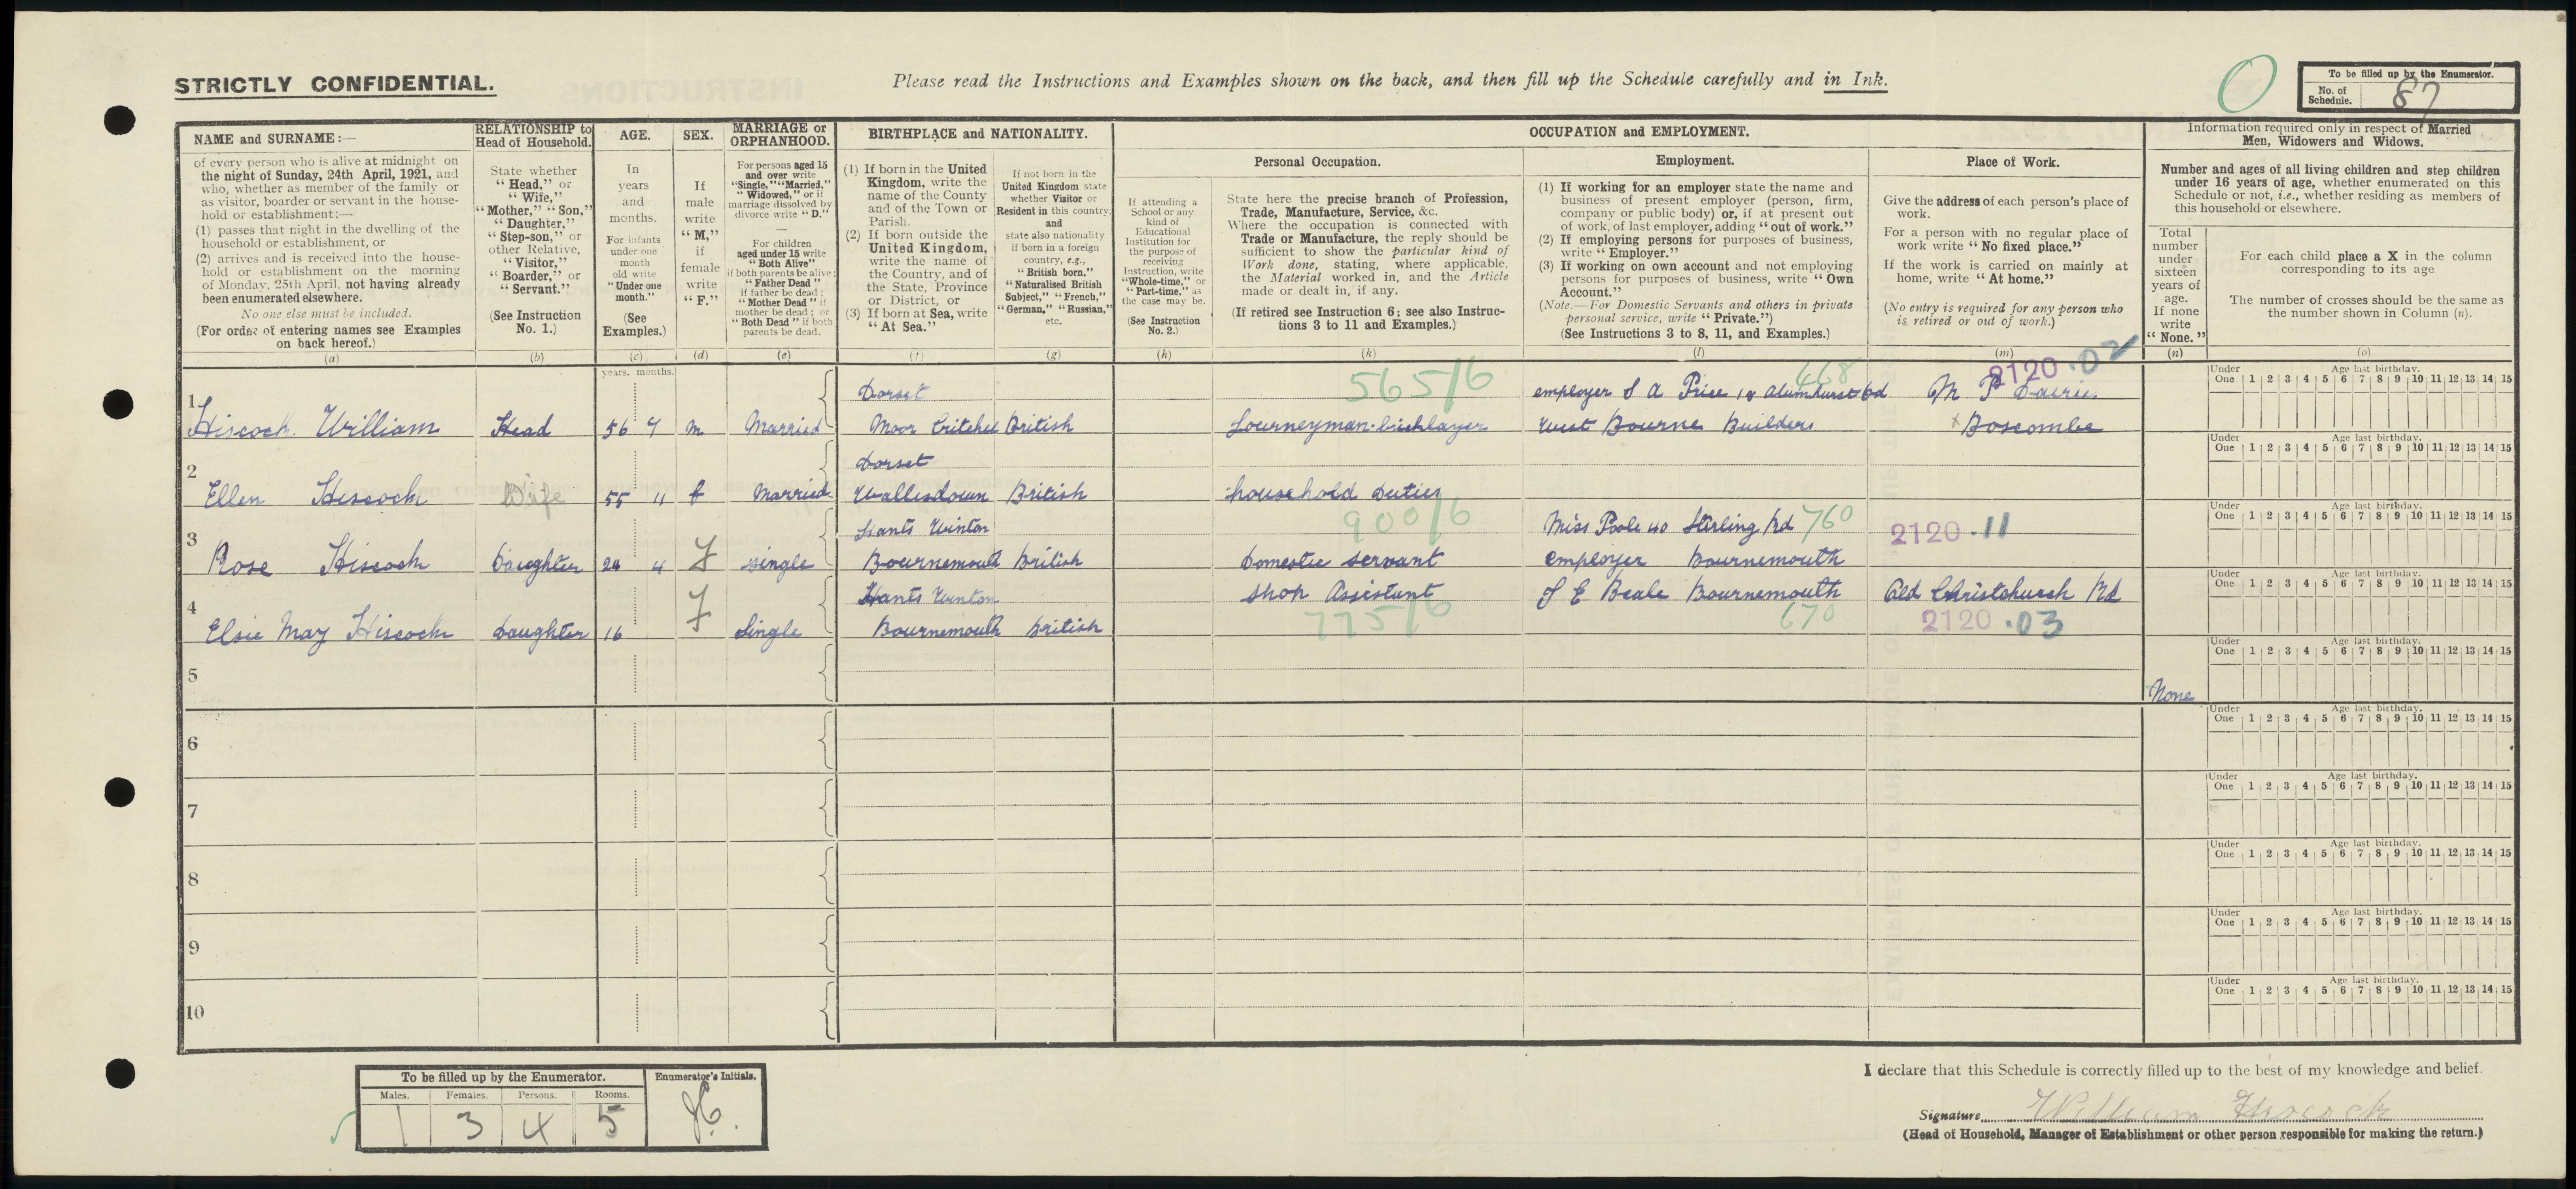 STRICTLY CONFIDENTIAL.
Please read the Instructions and Examples shown on the back, and then fill up the Schedule carefully and in Ink.
O
To be filled up by the Enumerator.
No. of Schedule. 87
NAME and SURNAME:—
of every person who is alive at midnight on
the night of Sunday, 24th April, 1921, and
who, whether as member of the family or
as visitor, boarder or servant in the house-
hold or establishment:—
(1) passes that night in the dwelling of the
household or establishment, or
(2) arrives and is received into the house-
hold or establishment on the morning
of Monday, 25th April, not having already
been enumerated elsewhere.
No one else must be included.
(For order of entering names see Examples
on back hereof.)
(a)
RELATIONSHIP to
Head of Household.
State whether
"Head," or
"Wife,"
"Mother," "Son,"
"Daughter,"
"Step-son," or
other Relative,
"Visitor,"
"Boarder," or
"Servant."
(See Instruction
No. 1.)
(b)
AGE.
In
years
and
months.
For infants
under one
month
old write
"Under one
month."
(See
Examples.)
(c)
SEX.
If
male
write
"M,"
if
female
write
"F."
(d)
MARRIAGE or
ORPHANHOOD.
For persons aged 15
and over write
"Single," "Married,"
"Widowed," or if
marriage dissolved by
divorce write "D."
—
For children
aged under 15 write
"Both Alive"
if both parents be alive;
"Father Dead"
if father be dead;
"Mother Dead" if
mother be dead; or
"Both Dead" if both
parents be dead.
(e)
BIRTHPLACE and NATIONALITY.
(1) If born in the United
Kingdom, write the
name of the County
and of the Town or
Parish.
(2) If born outside the
United Kingdom,
write the name of
the Country, and of
the State, Province
or District, or
(3) If born at Sea, write
"At Sea."
(f)
If not born in the
United Kingdom state
whether Visitor or
Resident in this country,
and
state also nationality
if born in a foreign
country, e.g.,
"British born,"
"Naturalised British
Subject," "French,"
"German," "Russian,"
etc.
(g)
OCCUPATION and EMPLOYMENT.
If attending a
School or any
kind of
Educational
Institution for
the purpose of
receiving
Instruction, write
"Whole-time," or
"Part-time," as
the case may be.
(See Instruction
No. 2.)
(h)
Personal Occupation.
State here the precise branch of Profession,
Trade, Manufacture, Service, &c.
Where the occupation is connected with
Trade or Manufacture, the reply should be
sufficient to show the particular kind of
Work done, stating, where applicable,
the Material worked in, and the Article
made or dealt in, if any.
(If retired see Instruction 6; see also Instruc-
tions 3 to 11 and Examples.)
(k)
Employment.
(1) If working for an employer state the name and
business of present employer (person, firm,
company or public body) or, if at present out
of work, of last employer, adding "out of work."
(2) If employing persons for purposes of business,
write "Employer."
(3) If working on own account and not employing
persons for purposes of business, write "Own
Account."
(Note.—For Domestic Servants and others in private
personal service, write "Private.")
(See Instructions 3 to 8, 11, and Examples.)
(l)
Place of Work.
Give the address of each person's place of
work.
For a person with no regular place of
work write "No fixed place."
If the work is carried on mainly at
home, write "At home."
(No entry is required for any person who
is retired or out of work.)
(m)
Information required only in respect of Married
Men, Widowers and Widows.
Number and ages of all living children and step children
under 16 years of age, whether enumerated on this
Schedule or not, i.e., whether residing as members of
this household or elsewhere.
Total
number
under
sixteen
years of
age.
If none
write
"None."
(n)
For each child place a X in the column
corresponding to its age
The number of crosses should be the same as
the number shown in Column (n).
(o)
years. months.
Dorset 565/6 employer J A Price 18 Alumhurst Rd 668 2120 .02
1 Hiscock William Head 56 7 m Married Moor Critchel British Journeyman bricklayer West Bourne Builders Boscombe
Under One 1 2 3 4 5 6 7 8 9 10 11 12 13 14 15
Age last birthday.
Dorset
2 Ellen Hiscock Wife 55 11 f Married Wallisdown British household Duties
Under One 1 2 3 4 5 6 7 8 9 10 11 12 13 14 15
Age last birthday.
Hants Winton 900/6 Miss Poole 40 Stirling Rd 760 2120 .11
3 Rose Hiscock Daughter 24 4 F single Bournemouth British Domestic servant employer Bournemouth
Under One 1 2 3 4 5 6 7 8 9 10 11 12 13 14 15
Age last birthday.
Hants Winton Shop Assistant J E Beale Bournemouth Old Christchurch Rd
4 Elsie May Hiscock Daughter 16 F Single Bournemouth British 775/6 670 2120 .03
Under One 1 2 3 4 5 6 7 8 9 10 11 12 13 14 15
Age last birthday.
5 None
Under One 1 2 3 4 5 6 7 8 9 10 11 12 13 14 15
Age last birthday.
6
Under One 1 2 3 4 5 6 7 8 9 10 11 12 13 14 15
Age last birthday.
7
Under One 1 2 3 4 5 6 7 8 9 10 11 12 13 14 15
Age last birthday.
8
Under One 1 2 3 4 5 6 7 8 9 10 11 12 13 14 15
Age last birthday.
9
Under One 1 2 3 4 5 6 7 8 9 10 11 12 13 14 15
Age last birthday.
10
Under One 1 2 3 4 5 6 7 8 9 10 11 12 13 14 15
Age last birthday.
To be filled up by the Enumerator.
Males. Females. Persons. Rooms.
1 3 4 5
Enumerator's Initials.
I declare that this Schedule is correctly filled up to the best of my knowledge and belief.
Signature William Hiscock
(Head of Household, Manager of Establishment or other person responsible for making the return.)